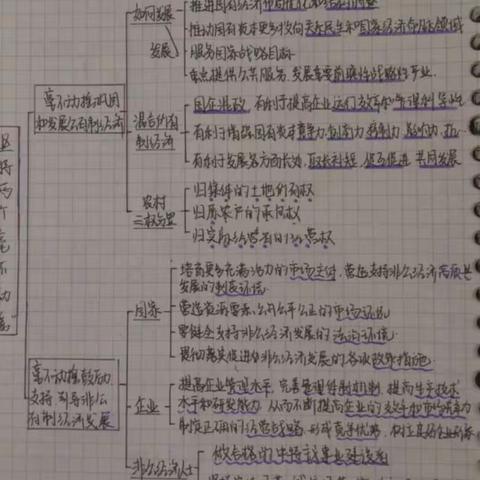 如何发展
推进国有经济布局优化和结构调整
推动国有资本更多投向关系民生和国家经济命脉领域
发展
服务国家战略目标
重点提供公共服务、发展重要前瞻性战略性产业
毫不动摇巩固
和发展公有制经济
混合所有
制经济
有利于提高企业运行效率和
有利于增强国有资本竞争力 创新力 控制力 影响力 抗
有利于发展各方面长处 取长补短 相互促进 共同发展
农村
三权分置
归集体的土地所有权
归属农户的承包权
归实际经营者的经营权
两
个
毫
不
动
摇
国家
培育更多充满活力的市场主体 营造支持非公经济高质量
发展的制度环境
公平公正的市场环境
要健全支持非公经济发展的法治环境
贯彻落实促进非公经济发展的各项政策措施
毫不动摇鼓励
支持 引导非公
有制经济发展
企业
提高企业管理水平 完善管理体制机制 提高生产技术
水平和研发能力 从而不断提高企业的效率和市场竞争力
制定正确的经营战略 形成竞争优势 树立良好企业形象
非公经济人士
做合格的中特社事业建设者